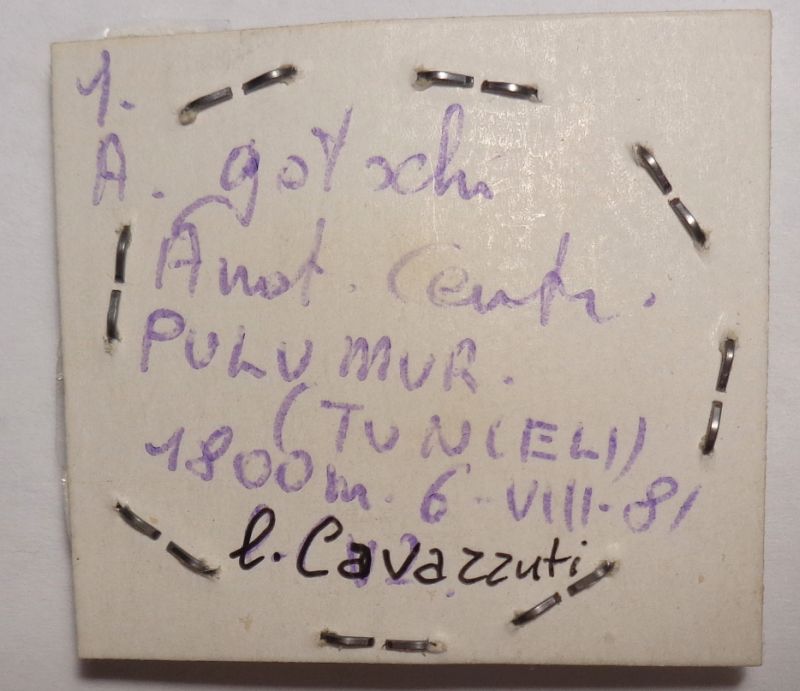 1.
A. gotschi
Anat. Centr.
PULUMUR.
(TUNCELI)
1800m. 6-VIII-81
l. Cavazzuti